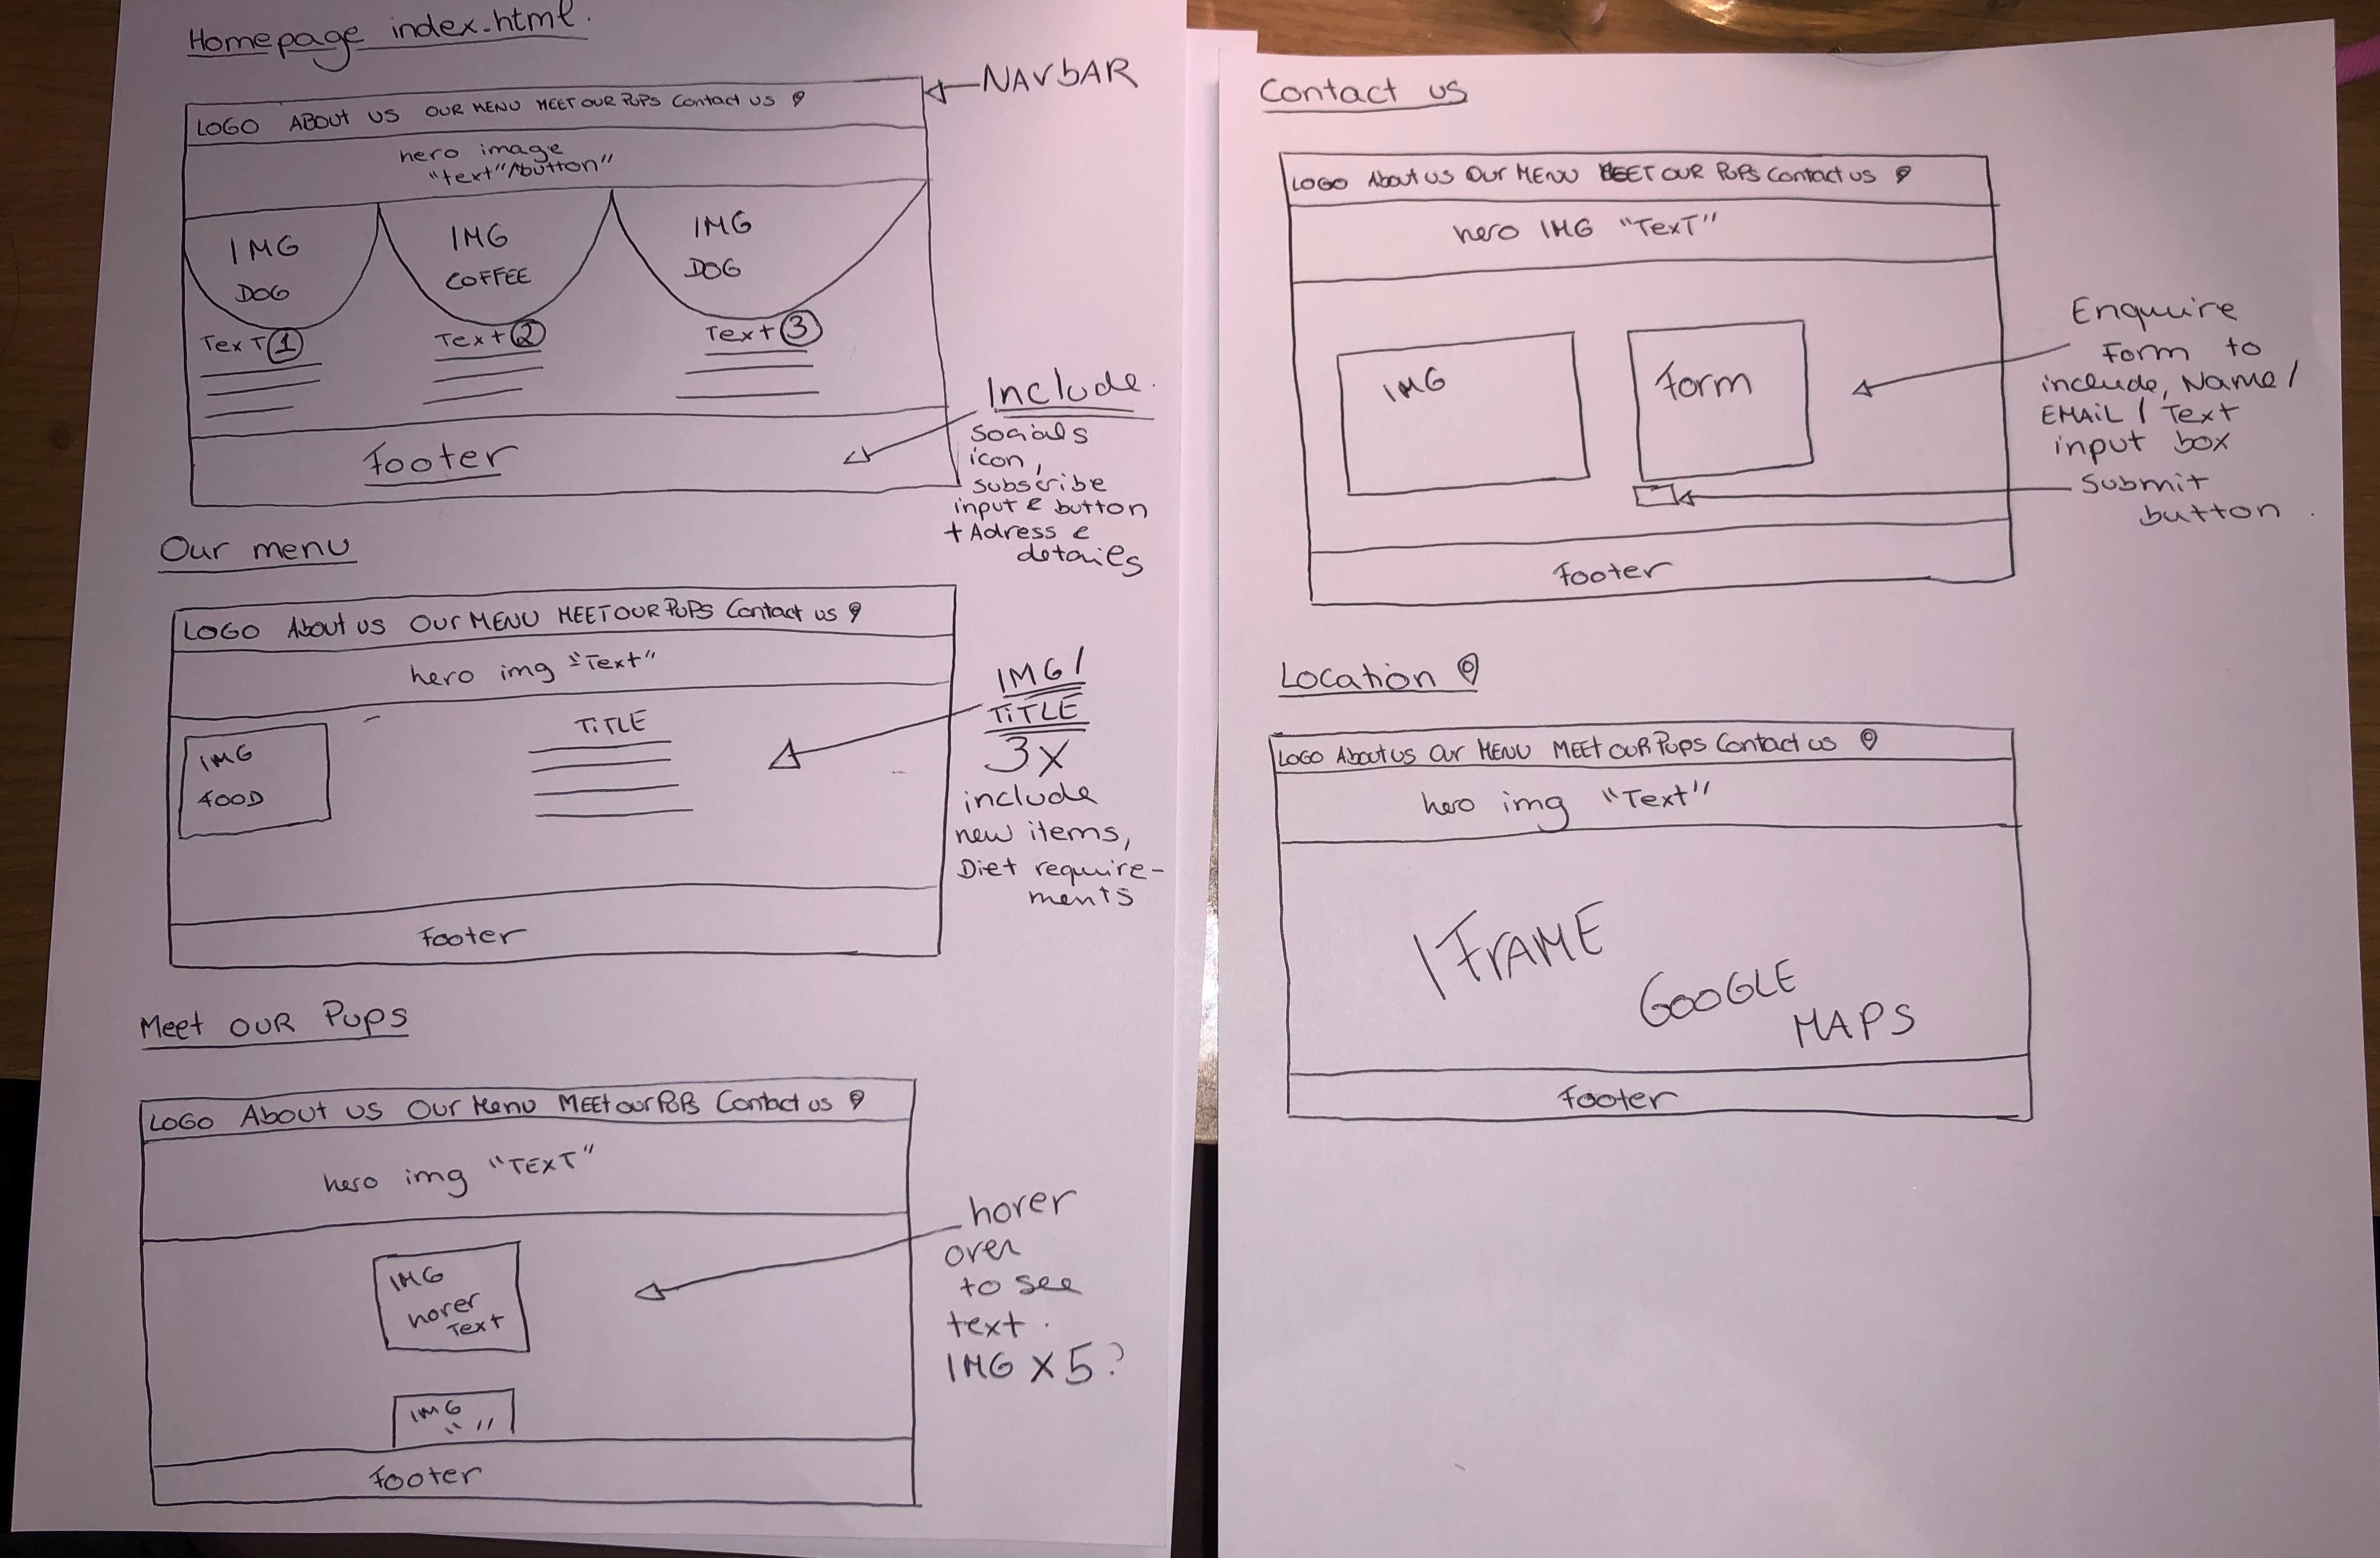 Homepage index.html.
NAVbAR
LOGO ABOUT US OUR MENU MEET OUR PUPS Contact us
hero image
"text"/button"
IMG
DOG
IMG
COFFEE
IMG
DOG
TexT 1
Text 2
Text 3
Footer
Include.
socials
icon,
subscribe
input & button
+ Adress &
details
Our menu
LOGO About us Our MENU MEET OUR PUPS Contact us
hero img "Text"
IMG
FOOD
TiTLE
IMG /
TiTLE
3x
include
new items,
Diet require-
ments
Footer
Meet OUR Pups
LOGO About us Our Menu MEEt our PUPs Contact us
hero img "TEXT"
IMG
hover
Text
IMG
" "
hover
over
to see
text.
IMG X 5?
Footer
Contact us
LOGO About us Our MENU MEET OUR PUPS Contact us
hero IMG "TexT"
IMG
Form
Enquire
Form to
include, Name /
EMAiL / Text
input box
Submit
button.
Footer
Location
LOGO About us Our MENU MEEt OUR Pups Contact us
hero img "Text"
IFrAME
GOOGLE
MAPS
Footer